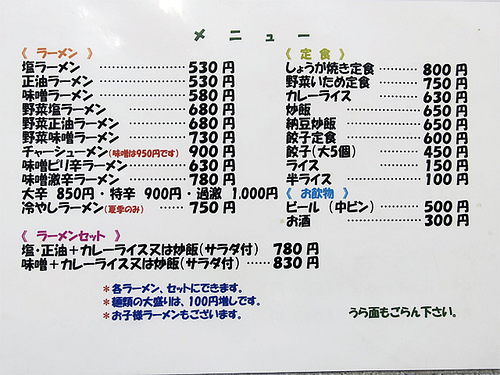 メニュー
《 ラーメン 》
塩ラーメン ………… 530 円
正油ラーメン ………… 530 円
味噌ラーメン ………… 580 円
野菜塩ラーメン ……… 680 円
野菜正油ラーメン …… 680 円
野菜味噌ラーメン …… 730 円
チャーシューメン(味噌は950円です) 900 円
味噌ピリ辛ラーメン ……… 630 円
味噌激辛ラーメン ……… 780 円
大辛 850円・特辛 900円・過激 1,000円
冷やしラーメン(夏季のみ) …… 750 円
《 ラーメンセット 》
塩・正油+カレーライス又は炒飯(サラダ付) 780 円
味噌+カレーライス又は炒飯(サラダ付) …… 830 円
*各ラーメン、セットにできます。
*麺類の大盛りは、100円増しです。
*お子様ラーメンもございます。
《 定 食 》
しょうが焼き定食 ……… 800 円
野菜いため定食 ……… 750 円
カレーライス ………… 630 円
炒飯 ………… 650 円
納豆炒飯 ………… 650 円
餃子定食 ………… 600 円
餃子(大5個) ……… 450 円
ライス ………… 150 円
半ライス ………… 100 円
《 お飲物 》
ビール (中ビン) …… 500 円
お酒 ………… 300 円
うら面もごらん下さい。